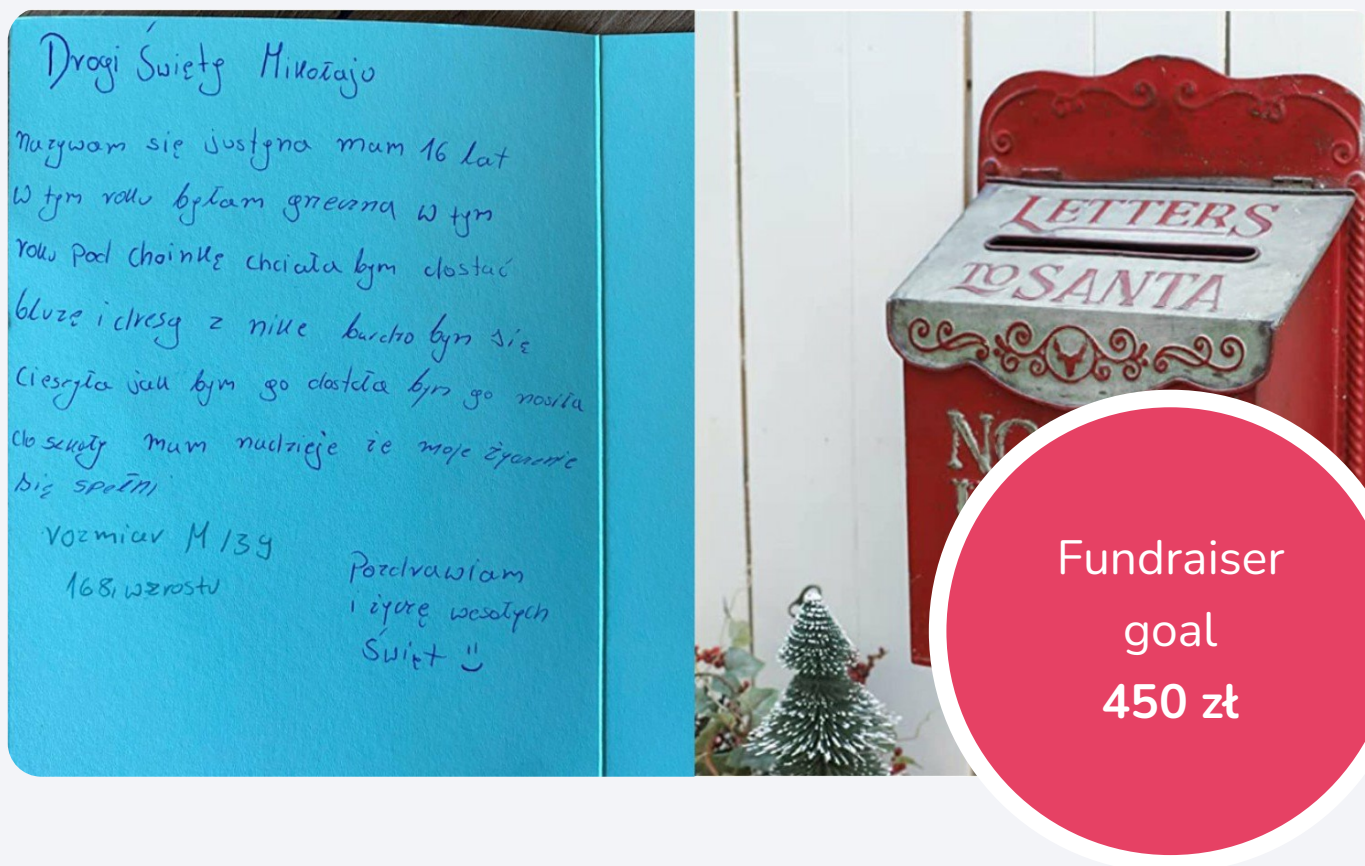 Drogi Święty Mikołaju
nazywam się justyna mam 16 lat
w tym roku byłam grzeczna w tym
roku pod choinkę chciała bym dostać
bluzę i dresy z nike bardzo bym się
cieszyła jak bym go dostała bym go nosiła
do szkoły mam nadzieje że moje życzenie
się spełni
rozmiar M / 39
168, wzrostu
Pozdrawiam
i życzę wesołych
Świąt
LETTERS
TO SANTA
NO
Fundraiser
goal
450 zł